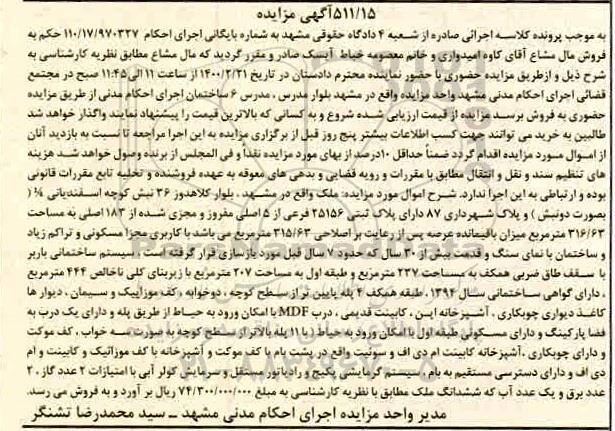 ۵۱۱/۱۵آگهی مزایده
به موجب پرونده کلاسه اجرائی صادره از شعبه ۴ دادگاه حقوقی مشهد به شماره بایگانی اجرای احکام ۱۱۰/۱۷/۹۷۰۳۲۷ حکم به
فروش مال مشاع آقای کاوه امیدواری و خانم معصومه خیاط آبسک صادر و مقرر گردید که مال مشاع مطابق نظریه کارشناسی به
شرح ذیل و ازطریق مزایده حضوری با حضور نماینده محترم دادستان در تاریخ ۱۴۰۰/۲/۲۱ از ساعت ۱۱ الی ۱۱:۴۵ صبح در مجتمع
قضائی اجرای احکام مدنی مشهد واحد مزایده واقع در مشهد بلوار مدرس ، مدرس ۶ ساختمان اجرای احکام مدنی از طریق مزایده
حضوری به فروش برسد مزایده از قیمت ارزیابی شده شروع و به کسانی که بالاترین قیمت را پیشنهاد نمایند واگذار خواهد شد
طالبین به خرید می توانند جهت کسب اطلاعات بیشتر پنج روز قبل از برگزاری مزایده به این اجرا مراجعه تا نسبت به بازدید آنان
از اموال مورد مزایده اقدام گردد ضمناً حداقل ۱۰درصد از بهای مورد مزایده نقدا و فی المجلس از برنده وصول خواهد شد هزینه
های تنظیم سند و نقل و انتقال مطابق با مقررات و رویه قضایی و بدهی های معوقه به عهده فروشنده و تخلیه تابع مقررات قانونی
بوده و ارتباطی به این اجرا ندارد. شرح اموال مورد مزایده: ملک واقع در مشهد ، بلوار کلاهدوز ۳۶ نبش کوچه اسفندیانی ¼ (
بصورت دونبش ) و پلاک شهرداری ۸۷ دارای پلاک ثبتی ۲۵۱۵۶ فرعی از ۵ اصلی مفروز و مجزی شده از ۱۸۳ اصلی به مساحت
۳۱۶/۶۳ مترمربع میزان باقیمانده عرصه پس از رعایت بر اصلاحی ۳۱۵/۶۳ مترمربع می باشد با کاربری مجزا مسکونی و تراکم زیاد
و ساختمان با نمای سنگ و قدمت بیش از ۳۰ سال که حدود ۷ سال قبل مورد بازسازی قرار گرفته است ، سیستم ساختمانی باربر
با سقف طاق ضربی همکف به مساحت ۲۳۷ مترمربع و طبقه اول به مساحت ۲۰۷ مترمربع با زیربنای کلی ناخالص ۴۴۴ مترمربع
، دارای گواهی ساختمانی سال ۱۳۹۴. طبقه همکف ۴ پله پایین تر از سطح کوچه ، دوخوابه ، کف موزاییک و سیمان ، دیوار ها
کاغذ دیواری چوبکاری ، آشپزخانه اپن ، کابینت قدیمی ، درب MDF با امکان ورود به حیاط از طریق پله و دارای یک درب به
فضا پارکینگ و دارای مسکونی طبقه اول با امکان ورود به حیاط ( با ۱۱ پله بالاتر از سطح کوچه به صورت سه خواب ، کف موکت
و دارای چوبکاری ، آشپزخانه کابینت ام دی اف و سوئیت واقع در پشت بام با کف موکت و آشپزخانه با کف موزائیک و کابینت و ام
دی اف و دارای دسترسی مستقیم به بام ، سیستم گرمایشی پکیج و رادیاتور مستقل و سرمایش کولر آبی با امتیازات ۲ عدد گاز ، ۲
عدد برق و یک عدد آب که ششدانگ ملک مطابق با نظریه کارشناسی به مبلغ ۷۴/۳۰۰/۰۰۰/۰۰۰ ریال بر آورد و به فروش می رسد.
مدیر واحد مزایده اجرای احکام مدنی مشهد ــ سید محمدرضا تشنگر